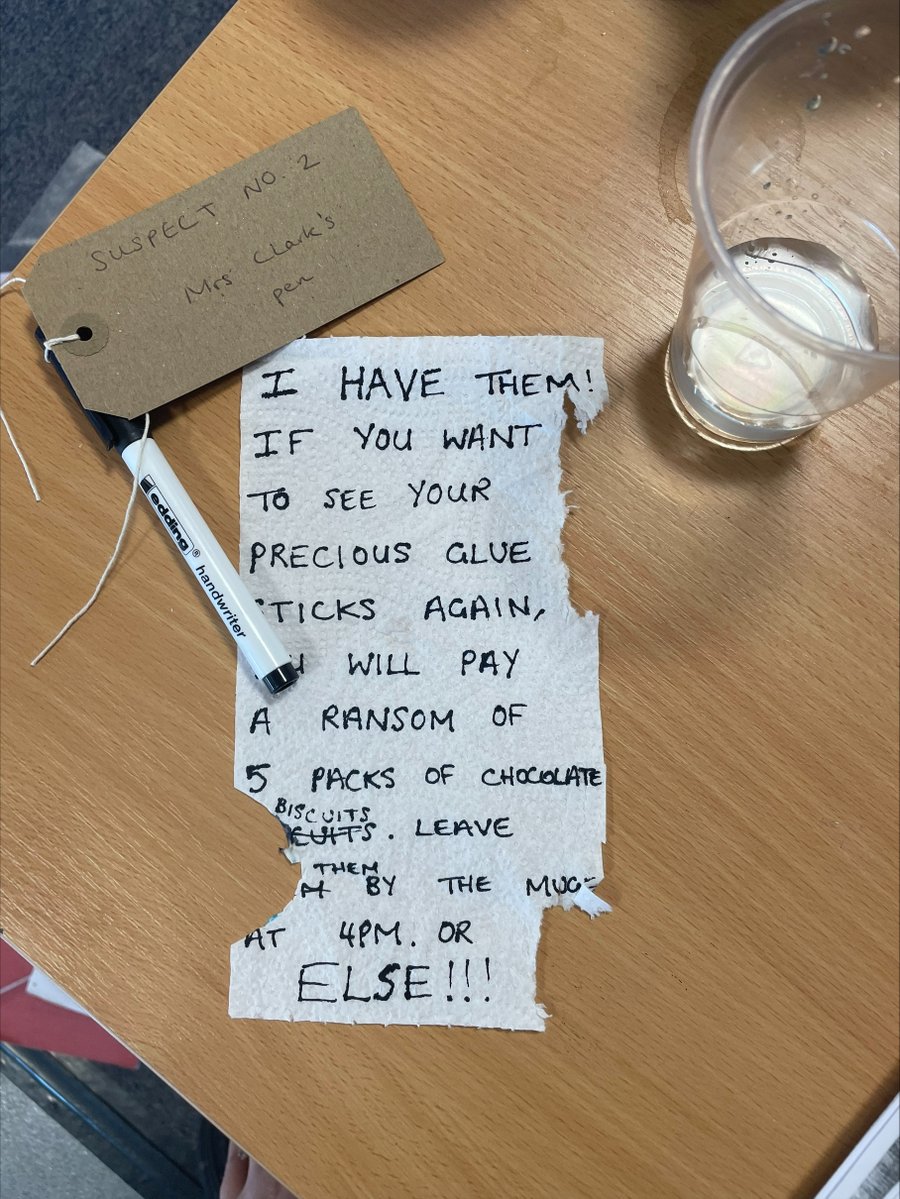 SUSPECT NO. 2
Mrs Clark's
pen
edding® handwriter
I HAVE THEM!
IF YOU WANT
TO SEE YOUR
PRECIOUS GLUE
TICKS AGAIN,
WILL PAY
A RANSOM OF
5 PACKS OF CHOCOLATE
BISCUITS
CUITS. LEAVE
THEM
M BY THE MUGS
AT 4PM. OR
ELSE!!!